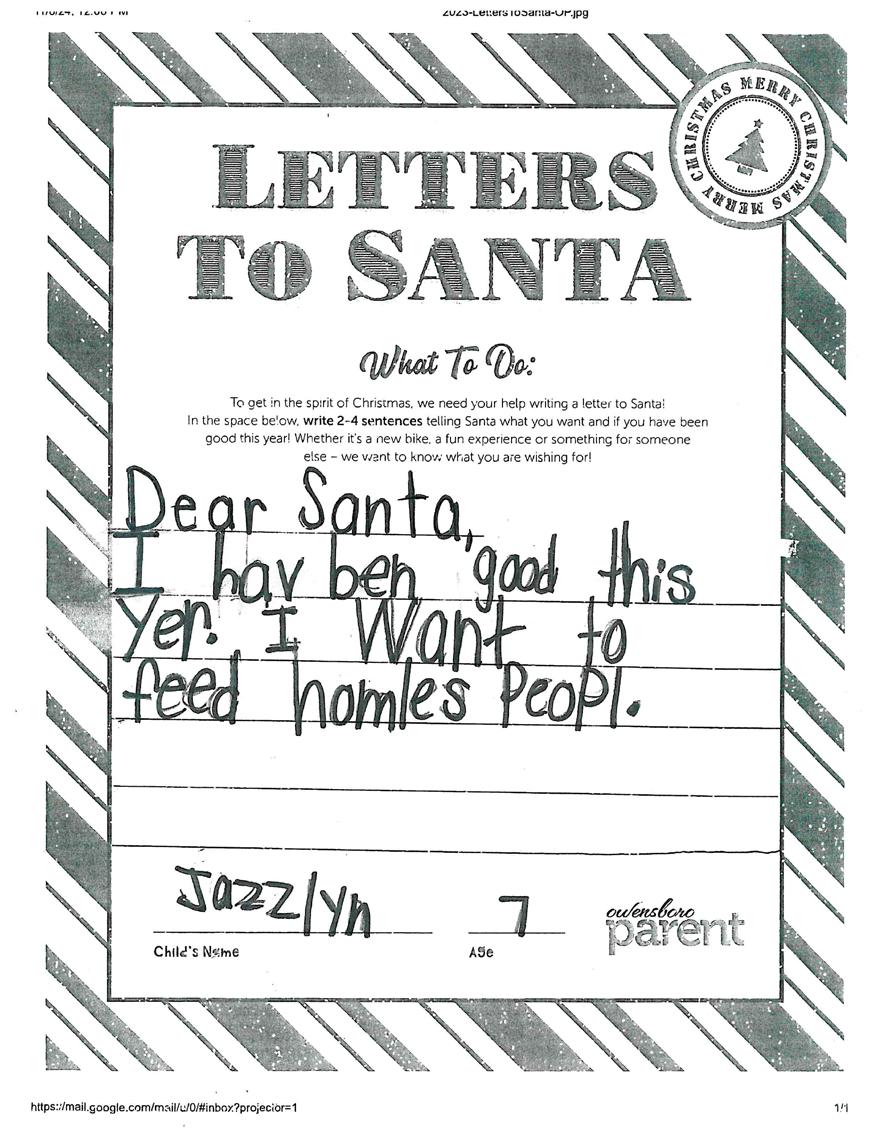 2023-LettersToSanta-OP.jpg
MERRY CHRISTMAS MERRY CHRISTMAS
LETTERS
TO SANTA
What To Do:
To get in the spirit of Christmas, we need your help writing a letter to Santa!
In the space below, write 2-4 sentences telling Santa what you want and if you have been
good this year! Whether it's a new bike, a fun experience or something for someone
else – we want to know what you are wishing for!
Dear Santa,
I hav ben good this
yer. I Want to
feed homles Peopl.
Jazzlyn 7
Child's Name Age
owensboro
parent
https://mail.google.com/mail/u/0/#inbox?projector=1 1/1